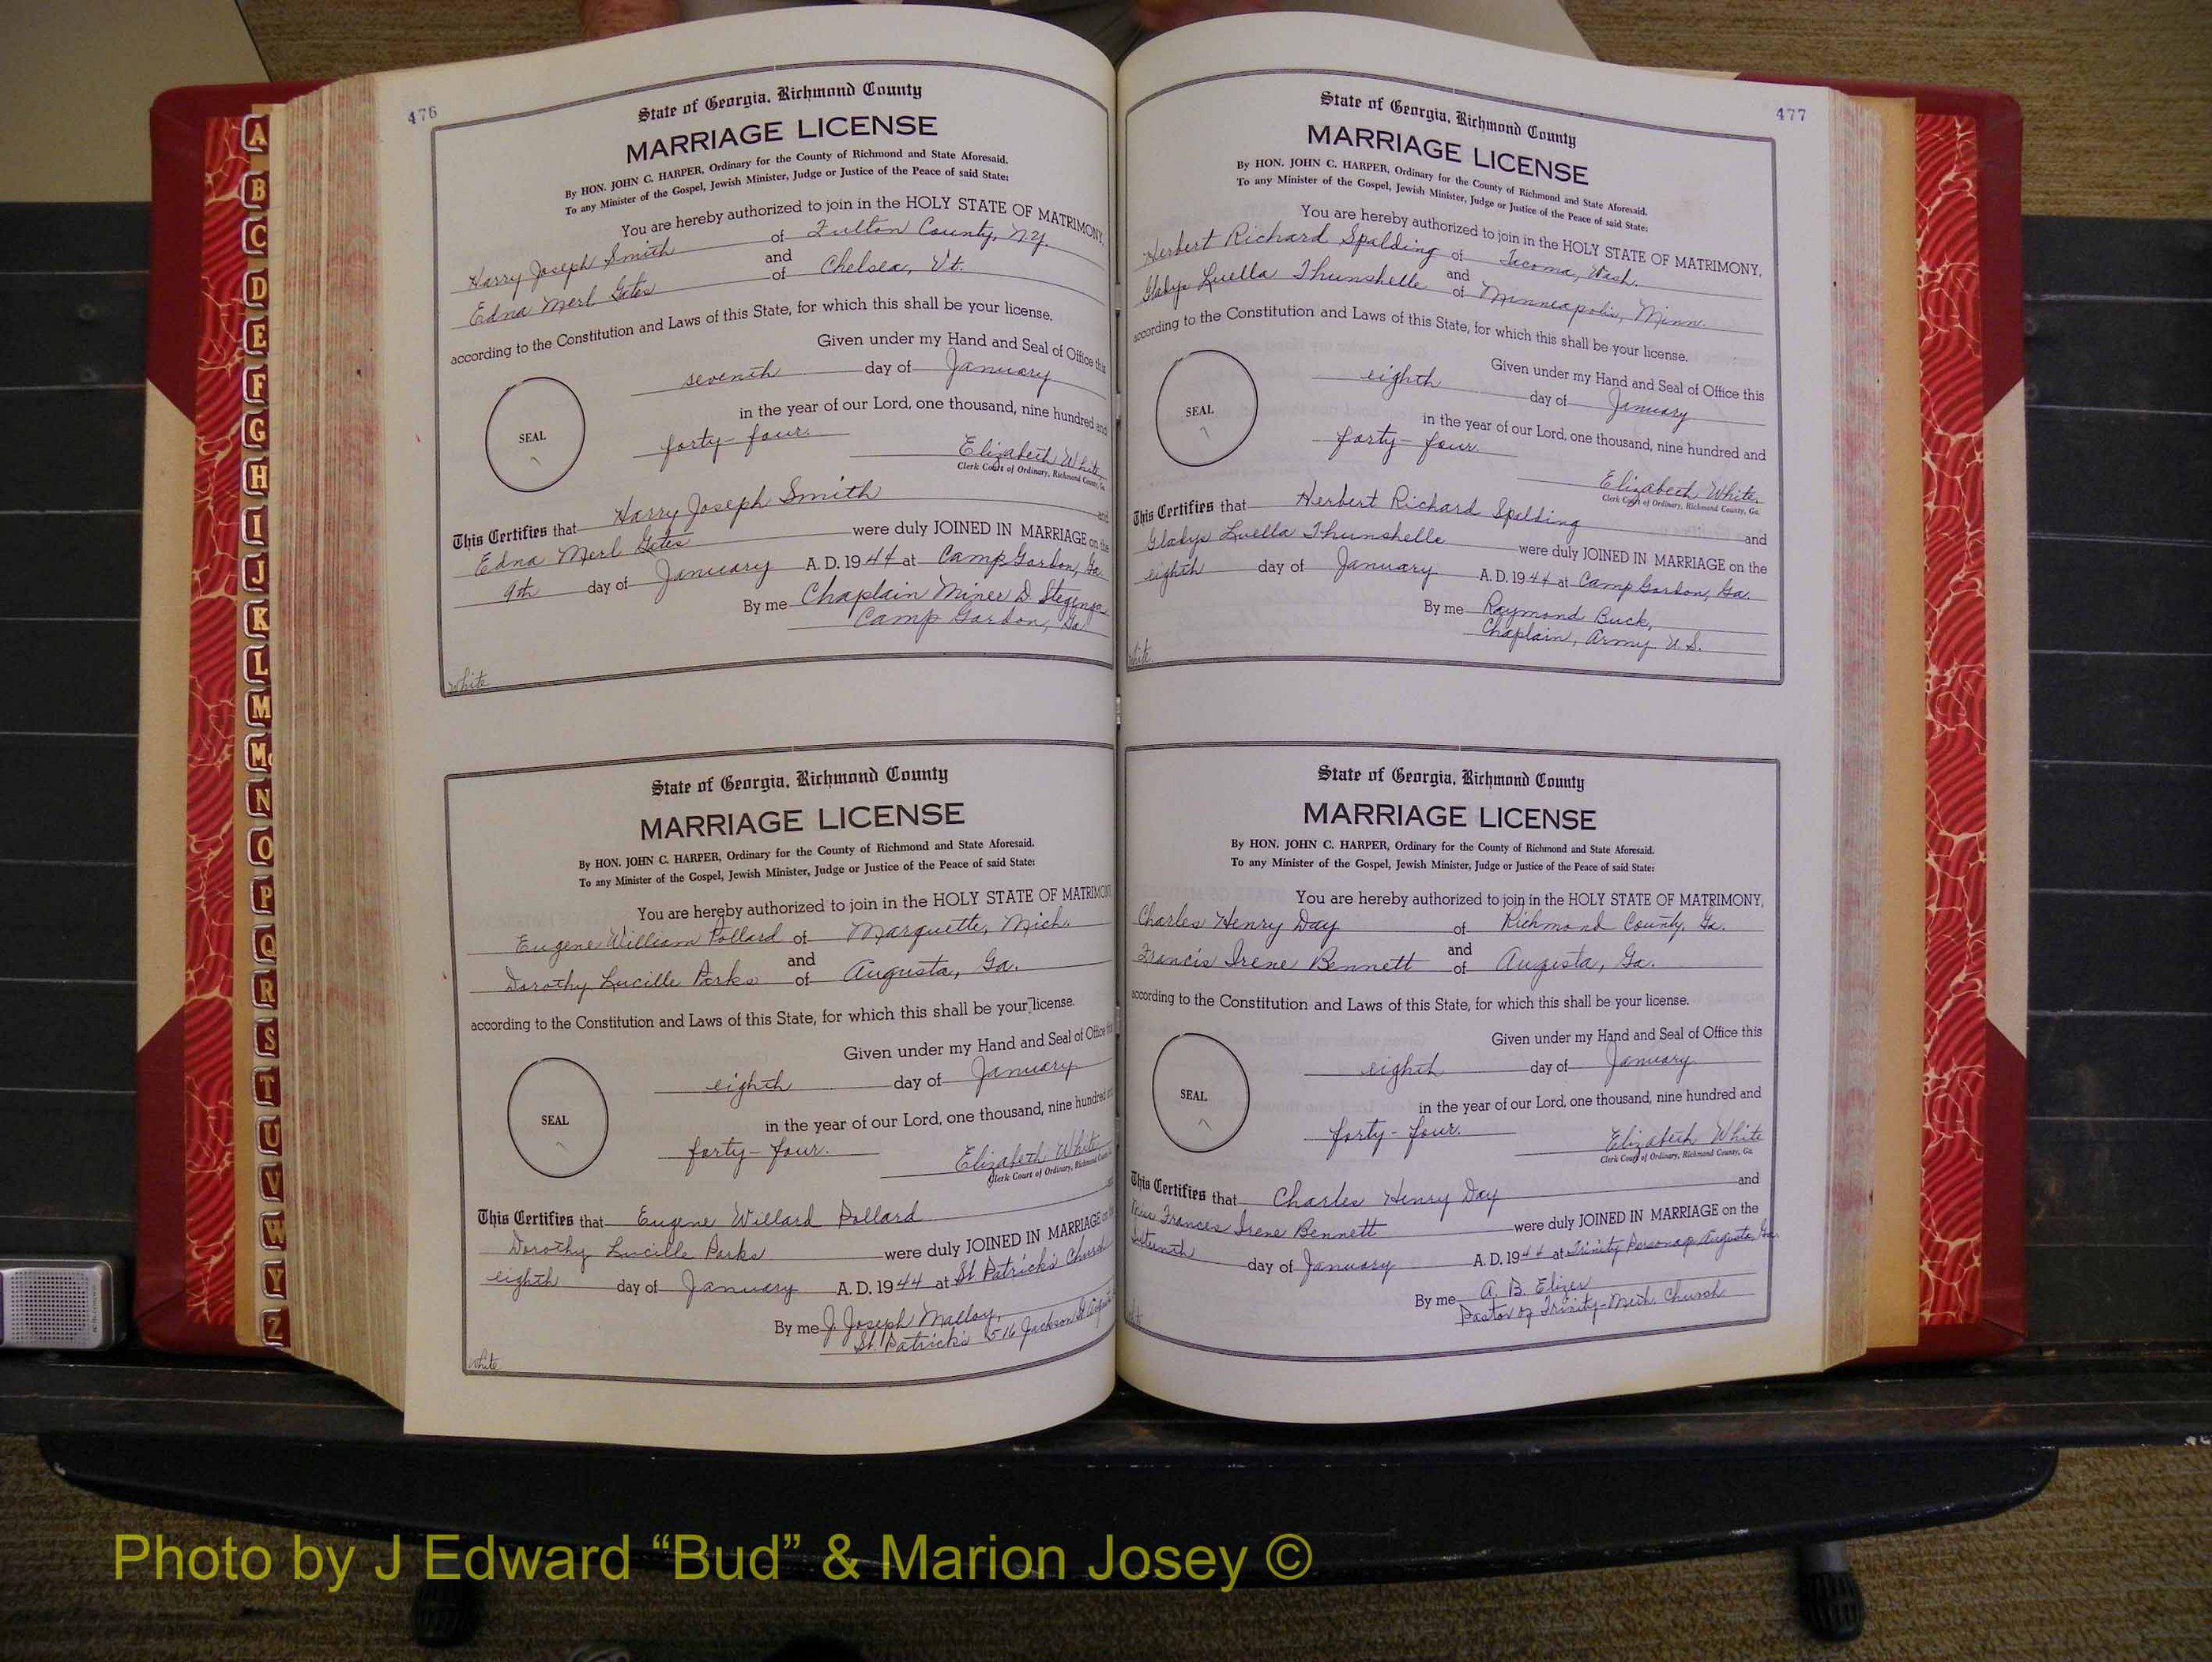 A
B
C
D
E
F
G
H
I
J
K
L
M
Mc
N
O
P
Q
R
S
T
U
V
W
Y
Z
476
State of Georgia, Richmond County
MARRIAGE LICENSE
By HON. JOHN C. HARPER, Ordinary for the County of Richmond and State Aforesaid.
To any Minister of the Gospel, Jewish Minister, Judge or Justice of the Peace of said State:
You are hereby authorized to join in the HOLY STATE OF MATRIMONY,
Harry Joseph Smith of Fulton County, N.Y.
and
Edna Merl Gates of Chelsea, Vt.
according to the Constitution and Laws of this State, for which this shall be your license.
Given under my Hand and Seal of Office this
seventh day of January
in the year of our Lord, one thousand, nine hundred and
SEAL
forty-four.
Elizabeth White
Clerk Court of Ordinary, Richmond County, Ga.
This Certifies that Harry Joseph Smith and
Edna Merl Gates were duly JOINED IN MARRIAGE on the
9th day of January A. D. 1944 at Camp Gordon, Ga.
By me Chaplain Miner D. Stegenga
Camp Gordon, Ga
White
State of Georgia, Richmond County
MARRIAGE LICENSE
By HON. JOHN C. HARPER, Ordinary for the County of Richmond and State Aforesaid.
To any Minister of the Gospel, Jewish Minister, Judge or Justice of the Peace of said State:
You are hereby authorized to join in the HOLY STATE OF MATRIMONY
Eugene William Pollard of Marquette, Mich.
and
Dorothy Lucille Parks of Augusta, Ga.
according to the Constitution and Laws of this State, for which this shall be your license.
Given under my Hand and Seal of Office this
eighth day of January
in the year of our Lord, one thousand, nine hundred and
SEAL
forty-four.
Elizabeth White
Clerk Court of Ordinary, Richmond
This Certifies that Eugene Willard Pollard
Dorothy Lucille Parks were duly JOINED IN MARRIAGE on
eighth day of January A. D. 1944 at St Patrick's Church
By me J. Joseph Malloy,
St. Patrick's 516 Jackson St
White
477
State of Georgia, Richmond County
MARRIAGE LICENSE
By HON. JOHN C. HARPER, Ordinary for the County of Richmond and State Aforesaid.
To any Minister of the Gospel, Jewish Minister, Judge or Justice of the Peace of said State:
You are hereby authorized to join in the HOLY STATE OF MATRIMONY,
Herbert Richard Spalding of Tacoma, Wash.
and
Gladys Luella Thunshelle of Minneapolis, Minn.
according to the Constitution and Laws of this State, for which this shall be your license.
Given under my Hand and Seal of Office this
eighth day of January
in the year of our Lord, one thousand, nine hundred and
SEAL
forty-four.
Elizabeth White
Clerk Court of Ordinary, Richmond County, Ga.
This Certifies that Herbert Richard Spalding and
Gladys Luella Thunshelle were duly JOINED IN MARRIAGE on the
eighth day of January A. D. 1944 at Camp Gordon, Ga.
By me Raymond Buck,
Chaplain, Army U. S.
White
State of Georgia, Richmond County
MARRIAGE LICENSE
By HON. JOHN C. HARPER, Ordinary for the County of Richmond and State Aforesaid.
To any Minister of the Gospel, Jewish Minister, Judge or Justice of the Peace of said State:
You are hereby authorized to join in the HOLY STATE OF MATRIMONY,
Charles Henry Day of Richmond County, Ga.
and
Francis Irene Bennett of Augusta, Ga.
according to the Constitution and Laws of this State, for which this shall be your license.
Given under my Hand and Seal of Office this
eighth day of January
in the year of our Lord, one thousand, nine hundred and
SEAL
forty-four.
Elizabeth White
Clerk Court of Ordinary, Richmond County, Ga.
This Certifies that Charles Henry Day and
Miss Frances Irene Bennett were duly JOINED IN MARRIAGE on the
day of January A. D. 1944 at Trinity Personage Augusta, Ga.
By me A. B. Elizer
Pastor of Trinity-Meth Church
Photo by J Edward “Bud” & Marion Josey ©